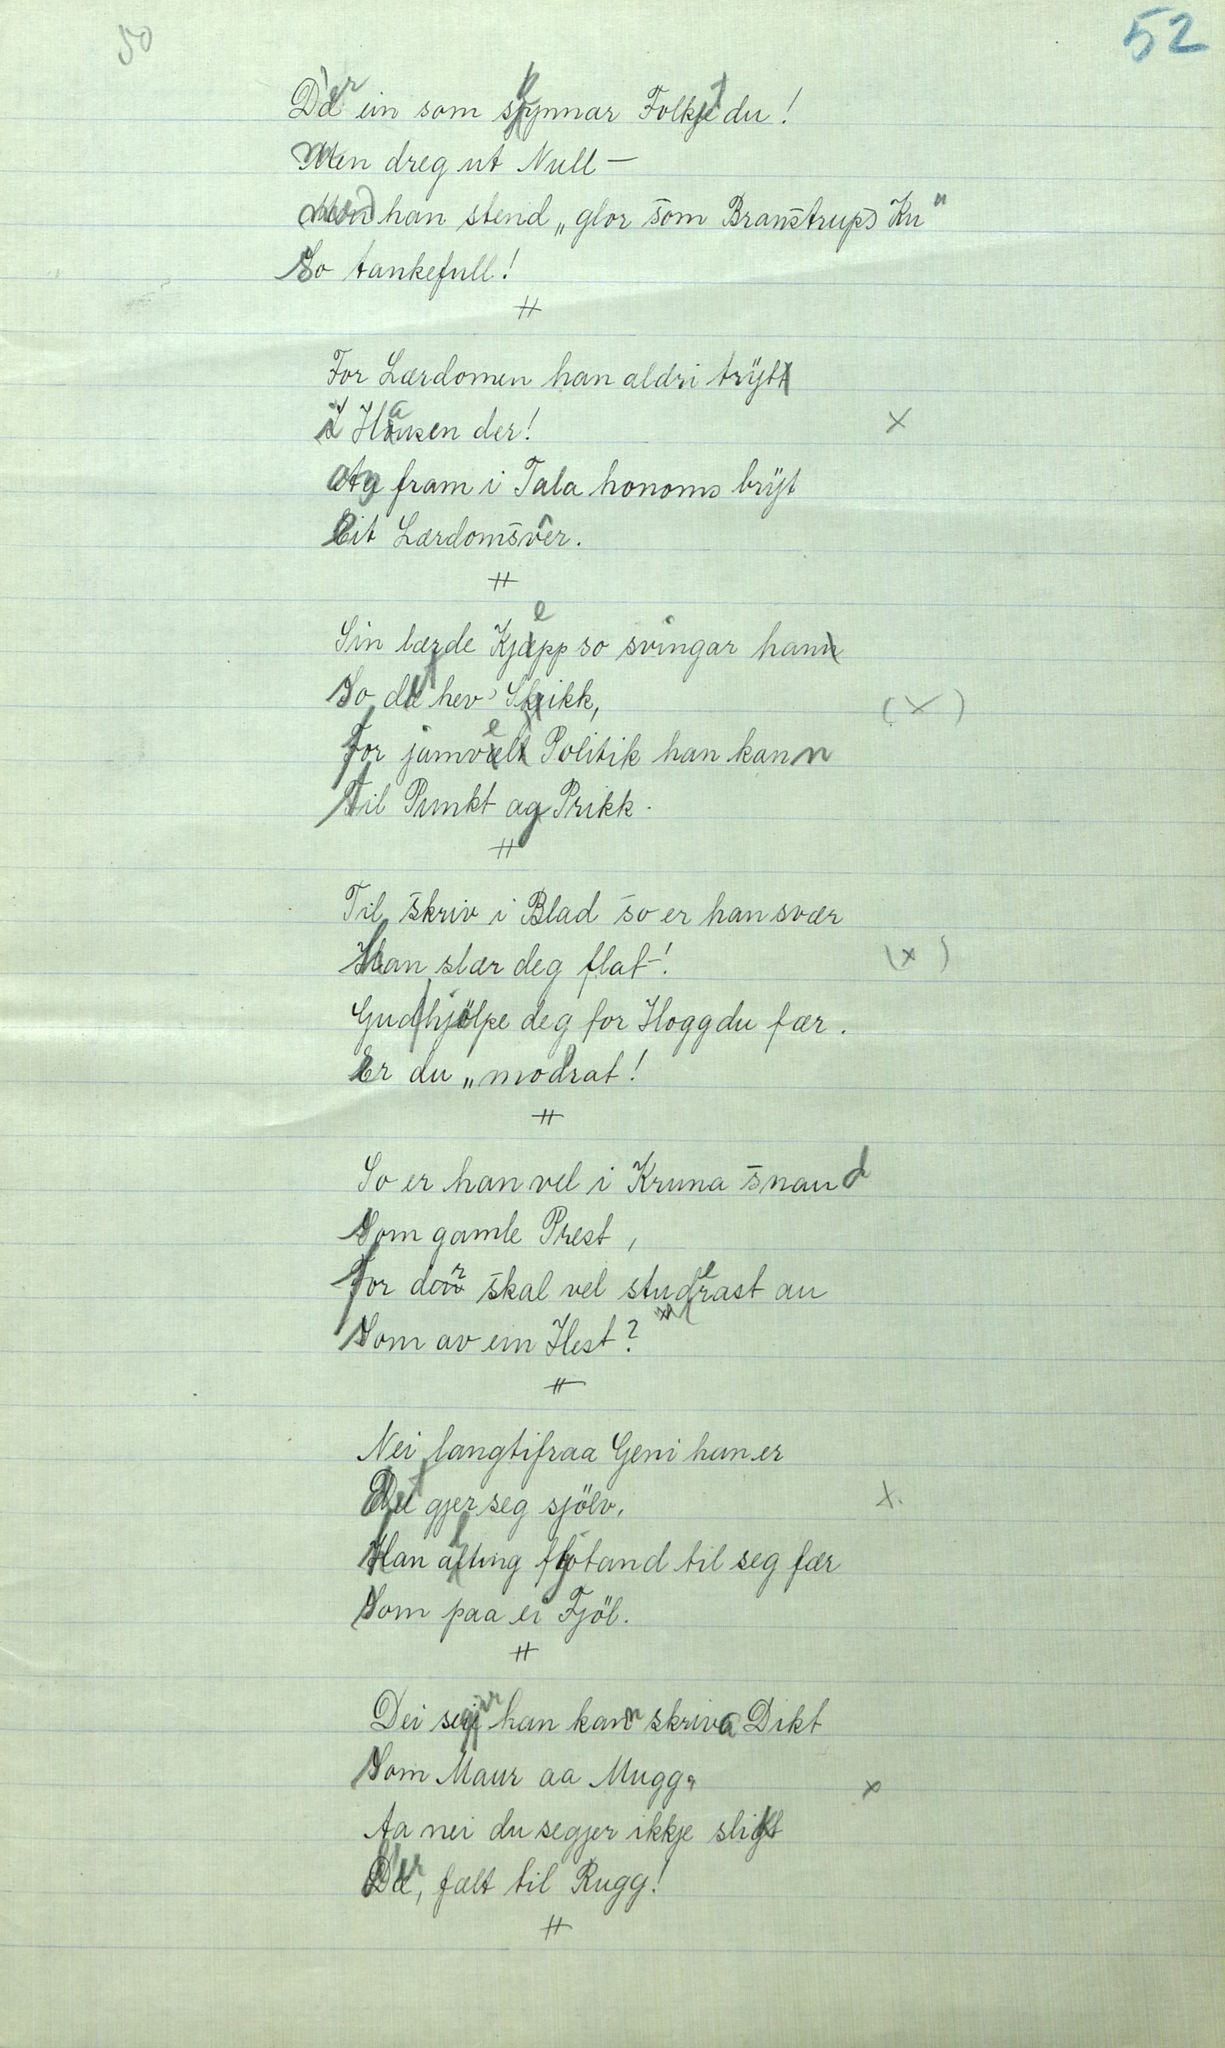 50
52
D'er ein som skynnar Folkjet du!
men dreg ut Null —
med han stend „glor som Branstrups Ku"
so tankefull!
#
For Lærdomen han aldri tryt
i Hausen der! x
og fram i Tala honoms bryt
eit Lærdomsvêr.
#
Sin lærde Kjepp so svingar han
so det hev Skikk, (x)
for jamvel Politik han kann
til Punkt og Prikk.
#
Til skriv i Blad so er han svær
han slær deg flat! (x)
Gud hjölpe deg for Hogg du fær.
er du „modrat!
#
So er han vel i Kruna snaud
som gamle Prest,
for der skal vel studerast au
som av ein Hest?
#
Nei langtifraa Geni han er
det gjer seg sjölv, x.
han alting fljotand til seg fær
som paa ei Fjöl.
#
Dei segjer han kann skriva Dikt
som Maur aa Mugg. x
Aa nei du segjer ikkje slikt
D'er, fælt til Rugg!
#